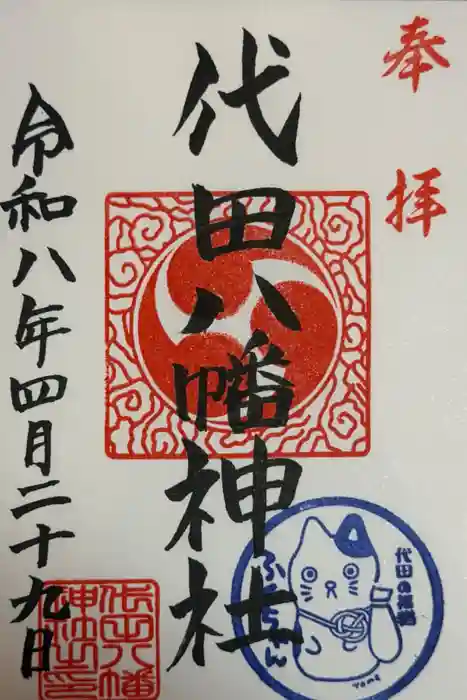 奉拝
代田八幡神社
令和八年四月二十九日
代田八幡
神社之印
代田の招福
ふくちゃん